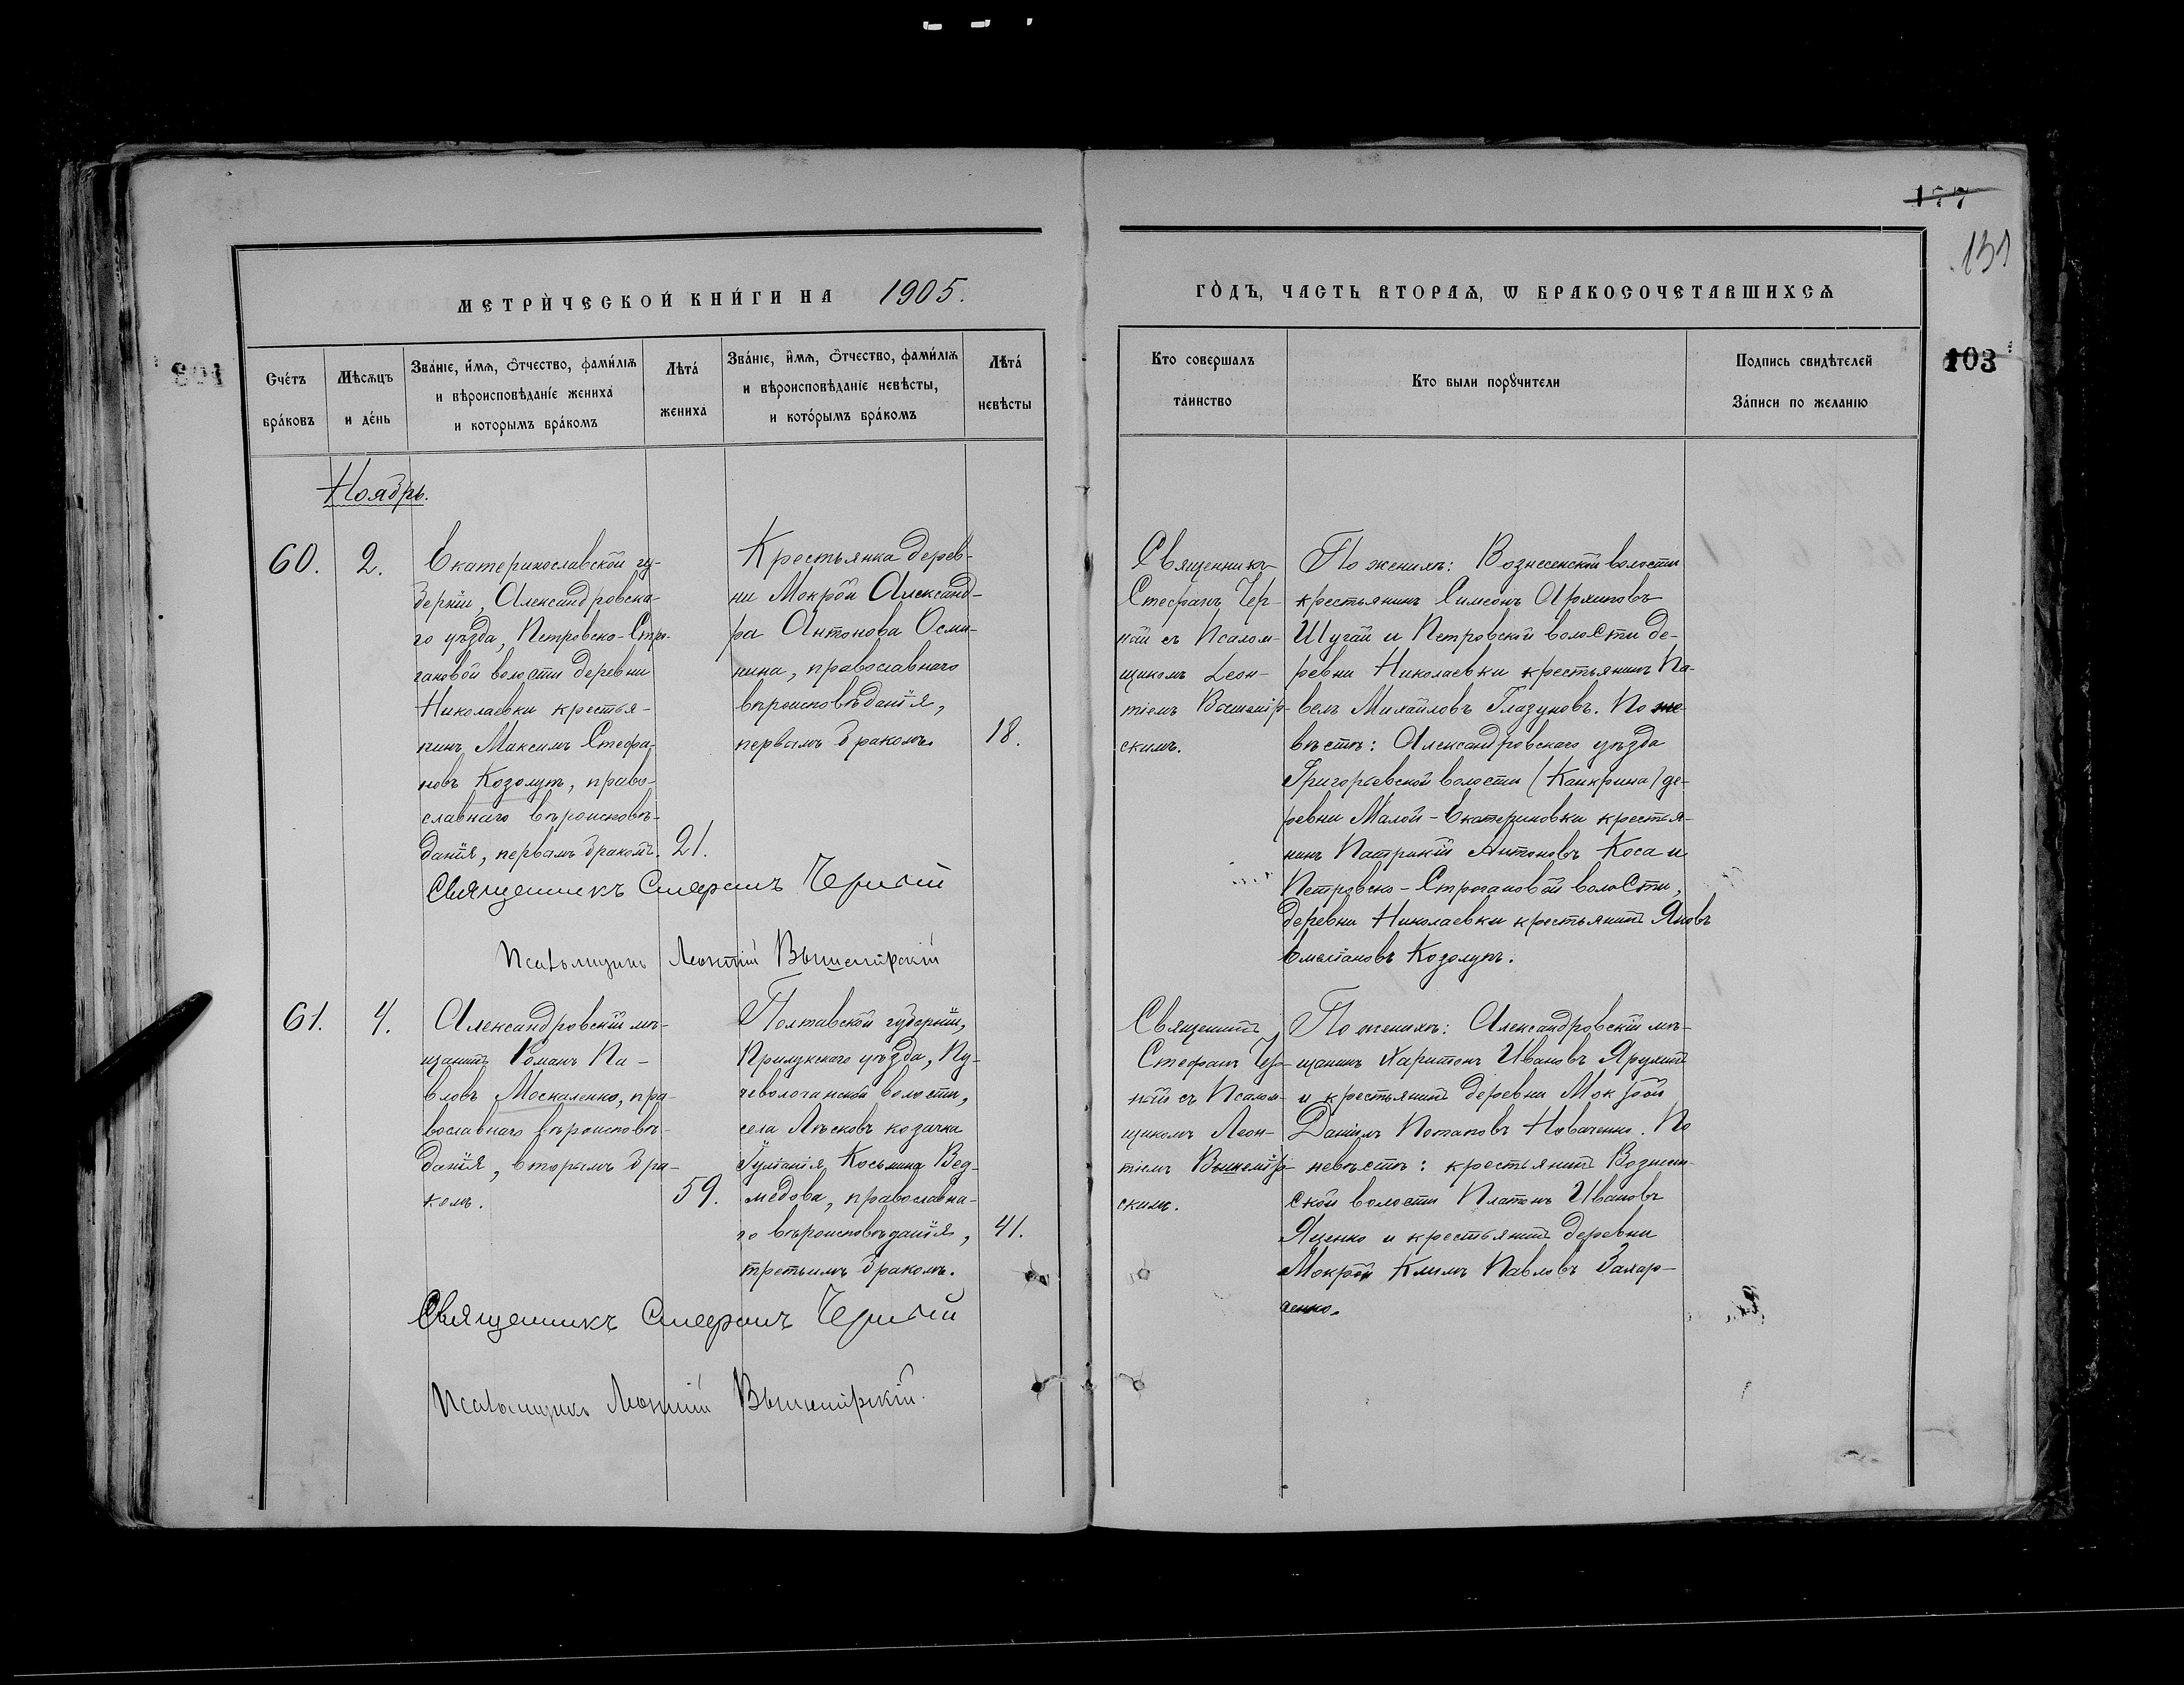 177
131
МЕТРИЧЕСКОЙ КНИГИ НА 1905.
ГОДЪ, ЧАСТЬ ВТОРАЯ, Ѡ БРАКОСОЧЕТАВШИХСЯ
103
Счетъ браковъ
Мѣсяцъ и день
Званіе, имя, отчество, фамилія
и вѣроисповѣданіе жениха
и которымъ бракомъ
Лѣта жениха
Званіе, имя, отчество, фамилія
и вѣроисповѣданіе невѣсты,
и которымъ бракомъ
Лѣта невѣсты
Кто совершалъ
таинство
Кто были поручители
Подпись свидѣтелей
Записи по желанію
Ноябрь.
60.
2.
Екатеринославской гу-
берніи, Александровска-
го уѣзда, Петровско-Стро-
гановой волости деревни
Николаевки крестья-
нинъ Максимъ Стефа-
новъ Козолупъ, право-
славнаго вѣроисповѣ-
данія, первымъ бракомъ.
21.
Крестьянка дерев-
ни Мокрой Александ-
ра Антонова Осми-
нина, православнаго
вѣроисповѣданія,
первымъ бракомъ.
18.
Священникъ
Стефанъ Чер-
ный съ Псалом-
щикомъ Леон-
тіемъ Вышемір-
скимъ.
По женихѣ: Вознесенской волости
крестьянинъ Симеонъ Архиповъ
Шугай и Петровской волости де-
ревни Николаевки крестьянинъ Па-
велъ Михайловъ Глазуновъ. По не-
вѣстѣ: Александровскаго уѣзда
Григорьевской волости (Канкрина) де-
ревни Малой-Екатериновки крестья-
нинъ Патрикій Антоновъ Коса и
Петровско-Строгановой волости,
деревни Николаевки крестьянинъ Яковъ
Емельяновъ Козолупъ.
Священникъ Стефанъ Черный
Псаломщикъ Леонтій Вышемірскій
61.
4.
Александровскій мѣ-
щанинъ Романъ Па-
вловъ Москаленко, пра-
вославнаго вѣроисповѣ-
данія, вторымъ бра-
комъ.
59.
Полтавской губерніи,
Прилукскаго уѣзда, Пу-
человочанской волости,
села Лѣсковъ козачка
Гуліанія Косьмина Вед-
медова, православна-
го вѣроисповѣданія,
третьимъ бракомъ.
41.
Священникъ
Стефанъ Чер-
ный съ Псалом-
щикомъ Леон-
тіемъ Вышемір-
скимъ.
По женихѣ: Александровскій мѣ-
щанинъ Харитонъ Ивановъ
и крестьянинъ деревни Мокрой
Даніилъ Потаповъ Новаченко. По
невѣстѣ: крестьянинъ Вознесен-
ской волости Платонъ Ивановъ
Яценко и крестьянинъ деревни
Мокрой Климъ Павловъ Захар-
ченко.
Священникъ Стефанъ Черный
Псаломщикъ Леонтій Вышемірскій.